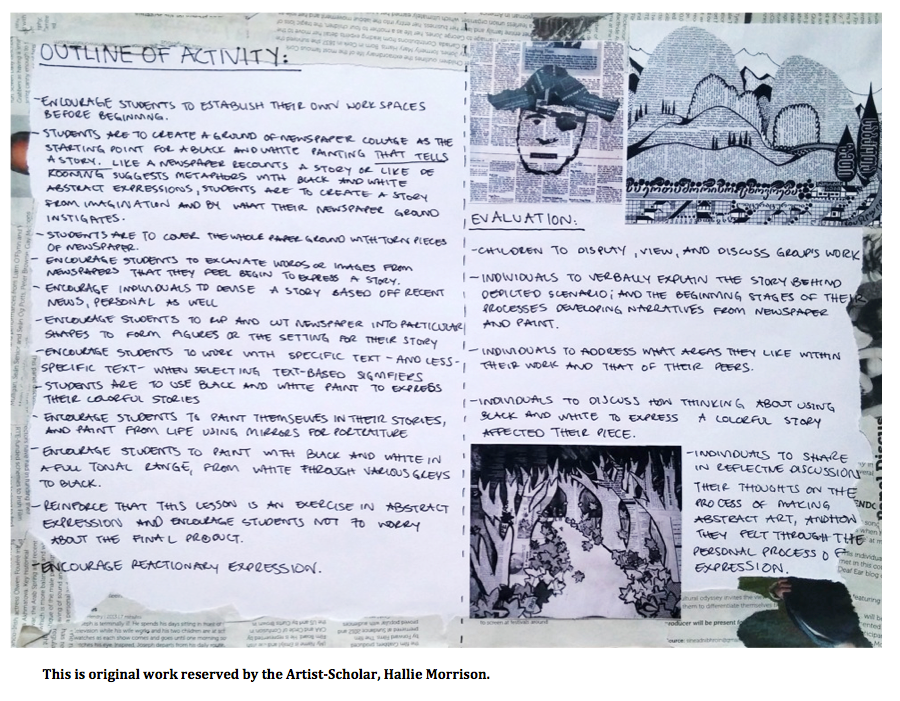 OUTLINE OF ACTIVITY:
-ENCOURAGE STUDENTS TO ESTABLISH THEIR OWN WORK SPACES
BEFORE BEGINNING.
- STUDENTS ARE TO CREATE A GROUND OF NEWSPAPER COLLAGE AS THE
STARTING POINT FOR A BLACK AND WHITE PAINTING THAT TELLS
A STORY. LIKE A NEWSPAPER RECOUNTS A STORY OR LIKE DE
KOONING SUGGESTS METAPHORS WITH BLACK AND WHITE
ABSTRACT EXPRESSIONS, STUDENTS ARE TO CREATE A STORY
FROM IMAGINATION AND BY WHAT THEIR NEWSPAPER GROUND
INSTIGATES.
- STUDENTS ARE TO COVER THE WHOLE PAPER GROUND WITH TORN PIECES
OF NEWSPAPER.
- ENCOURAGE STUDENTS TO EXCAVATE WORDS OR IMAGES FROM
NEWSPAPERS THAT THEY FEEL BEGIN TO EXPRESS A STORY.
- ENCOURAGE INDIVIDUALS TO DEVISE A STORY BASED OFF RECENT
NEWS, PERSONAL AS WELL
- ENCOURAGE STUDENTS TO RIP AND CUT NEWSPAPER INTO PARTICULAR
SHAPES TO FORM FIGURES OR THE SETTING FOR THEIR STORY
-ENCOURAGE STUDENTS TO WORK WITH SPECIFIC TEXT - AND LESS-
SPECIFIC TEXT- WHEN SELECTING TEXT-BASED SIGNIFIERS
- STUDENTS ARE TO USE BLACK AND WHITE PAINT TO EXPRESS
THEIR COLORFUL STORIES
- ENCOURAGE STUDENTS TO PAINT THEMSELVES IN THEIR STORIES,
AND PAINT FROM LIFE USING MIRRORS FOR PORTRAITURE
- ENCOURAGE STUDENTS TO PAINT WITH BLACK AND WHITE IN
A FULL TONAL RANGE, FROM WHITE THROUGH VARIOUS GREYS
TO BLACK.
- REINFORCE THAT THIS LESSON IS AN EXERCISE IN ABSTRACT
EXPRESSION AND ENCOURAGE STUDENTS NOT TO WORRY
ABOUT THE FINAL PRODUCT.
-ENCOURAGE REACTIONARY EXPRESSION.
EVALUATION:
-CHILDREN TO DISPLAY, VIEW, AND DISCUSS GROUP'S WORK
-INDIVIDUALS TO VERBALLY EXPLAIN THE STORY BEHIND
DEPICTED SCENARIO; AND THE BEGINNING STAGES OF THEIR
PROCESSES DEVELOPING NARRATIVES FROM NEWSPAPER
AND PAINT.
- INDIVIDUALS TO ADDRESS WHAT AREAS THEY LIKE WITHIN
THEIR WORK AND THAT OF THEIR PEERS.
- INDIVIDUALS TO DISCUSS HOW THINKING ABOUT USING
BLACK AND WHITE TO EXPRESS A COLORFUL STORY
AFFECTED THEIR PIECE.
-INDIVIDUALS TO SHARE
IN REFLECTIVE DISCUSSION
THEIR THOUGHTS ON THE
PROCESS OF MAKING
ABSTRACT ART, AND HOW
THEY FELT THROUGH THE
PERSONAL PROCESS OF
EXPRESSION.
This is original work reserved by the Artist-Scholar, Hallie Morrison.